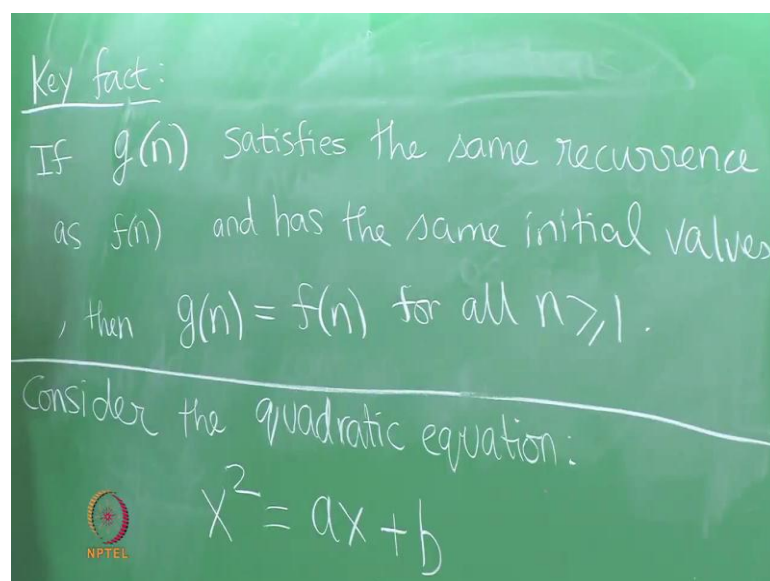 Key fact:
If g(n) satisfies the same recurrence
as f(n) and has the same initial values
, then g(n) = f(n) for all n ⩾ 1.
Consider the quadratic equation:
x² = ax + b
NPTEL